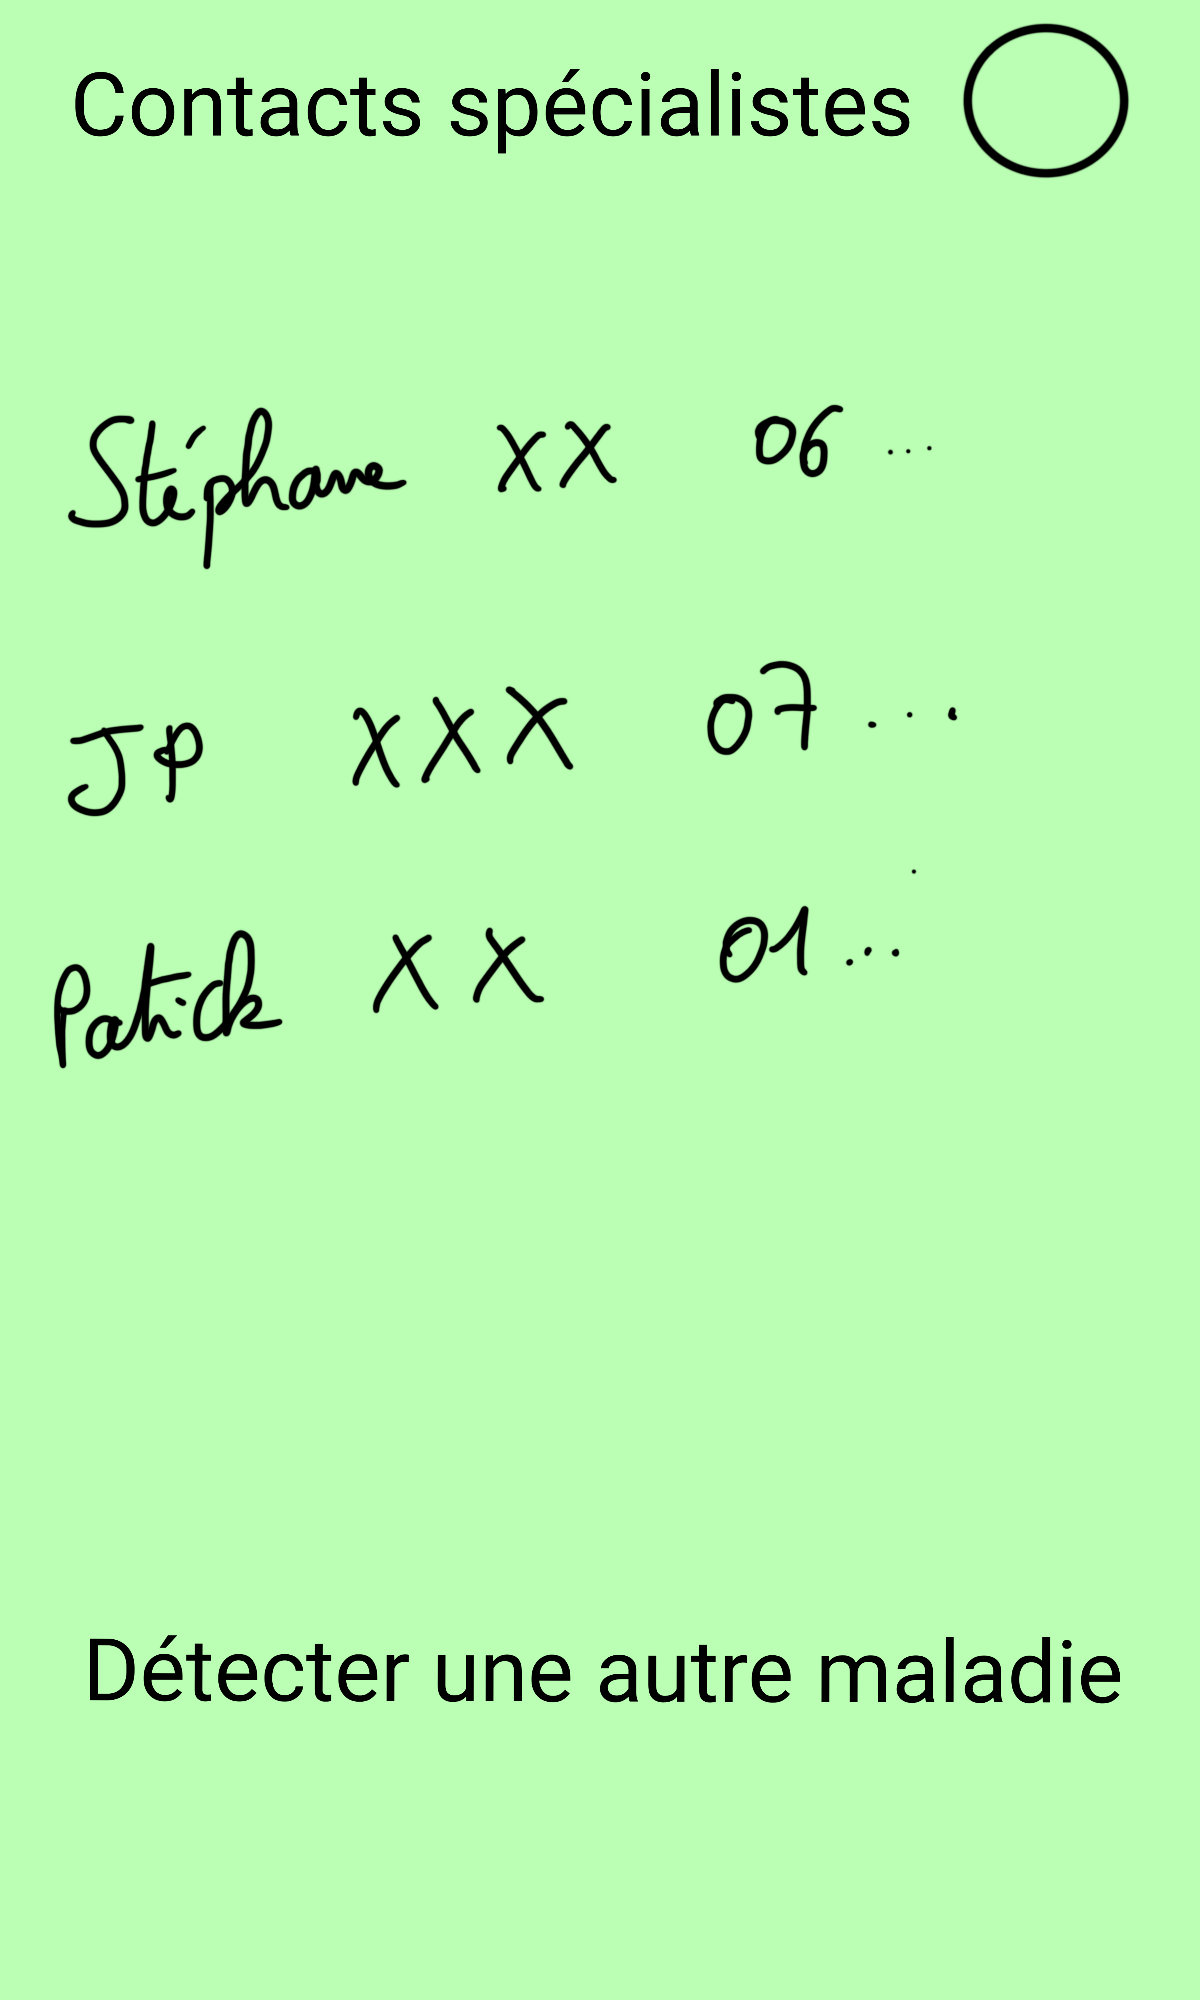 Contacts spécialistes
Stéphane XX 06 ...
JP XXX 07 ...
Patrick XX 01 ...
Détecter une autre maladie